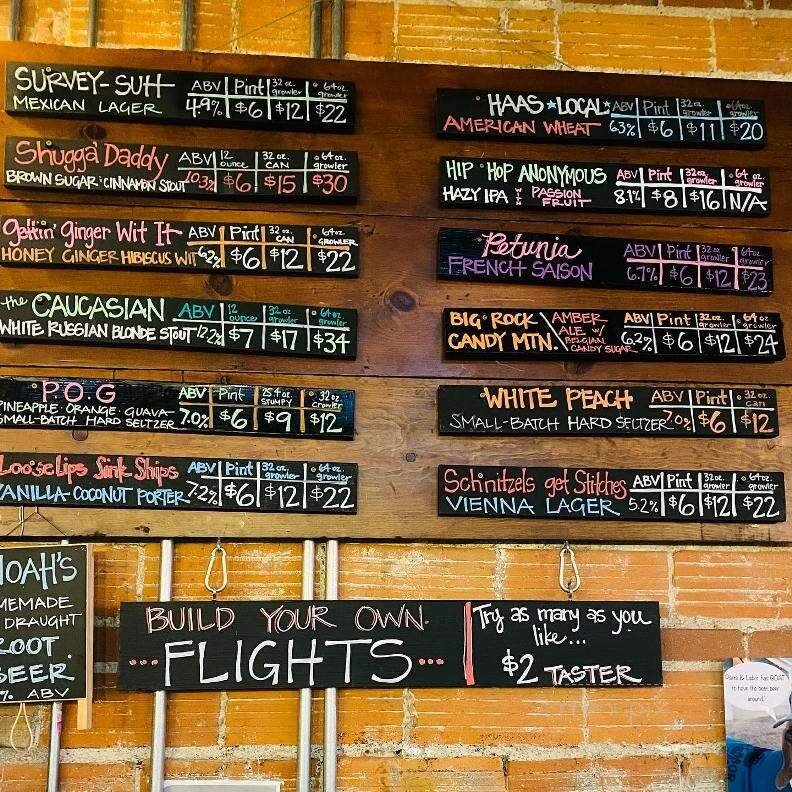 SURVEY-SUH ABV Pint 32 oz. growler 64 oz. growler
MEXICAN LAGER 4.9% $6 $12 $22
Shugga' Daddy ABV 12 ounce 32 oz. CAN 64 oz. growler
BROWN SUGAR · CINNAMON STOUT 10.3% $6 $15 $30
gettin' ginger Wit It ABV Pint 32 oz. CAN 64 oz. GROWLER
HONEY GINGER HIBISCUS WIT 6.2% $6 $12 $22
the CAUCASIAN ABV 12 ounce 32 oz. growler 64 oz. growler
WHITE RUSSIAN BLONDE STOUT 12.2% $7 $17 $34
P.O.G ABV Pint 25.4 oz. STUMPY 32 oz. crowler
PINEAPPLE · ORANGE · GUAVA
SMALL-BATCH HARD SELTZER 7.0% $6 $9 $12
Loose lips Sink Ships ABV Pint 32 oz. growler 64 oz. growler
VANILLA-COCONUT PORTER 7.2% $6 $12 $22
HAAS ★ LOCAL ★ ABV Pint 32 oz. growler 64 oz. growler
AMERICAN WHEAT 6.3% $6 $11 $20
HIP HOP ANONYMOUS ABV Pint 32 oz. growler 64 oz. growler
HAZY IPA PASSION FRUIT 8.1% $8 $16 N/A
Petunia ABV Pint 32 oz. growler 64 oz. growler
FRENCH SAISON 6.7% $6 $12 $23
BIG ROCK CANDY MTN. AMBER ALE W/ BELGIAN CANDY SUGAR ABV Pint 32 oz. growler 64 oz. growler
6.2% $6 $12 $24
WHITE PEACH ABV Pint 32 oz. can
SMALL-BATCH HARD SELTZER 7.0% $6 $12
Schnitzels get Stitches ABV Pint 32 oz. growler 64 oz. growler
VIENNA LAGER 5.2% $6 $12 $22
NOAH'S
HOMEMADE
DRAUGHT
ROOT
BEER
% ABV
BUILD YOUR OWN
...FLIGHTS...
Try as many as you
like...
$2 TASTER